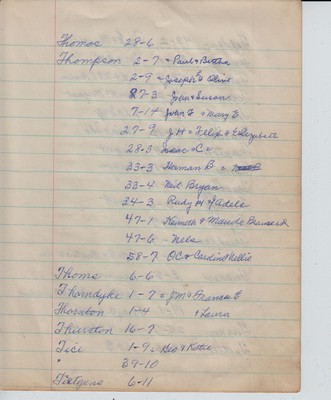 Thomas 28-6
Thompson 2-7 & Paul & Britta
2-9 & Joseph E Olive
27-3 John & Susan
7-14 John F & Mary E
27-9 J H & Felix & Elizabeth
28-3 Isaac & C
33-3 Herman B &
33-4 Neil Bryan
34-3 Rudy M & Adele
47-1 Kenneth & Maude
47-6 Nels
58-7 OC & Nellie
Thoms 6-6
Thorndyke 1-7 & Jm & Frances E
Thornton 1-4 & Laura
Thurston 16-7
Tice 1-9 & Geo & Katie
" 39-10
Tietgens 6-11